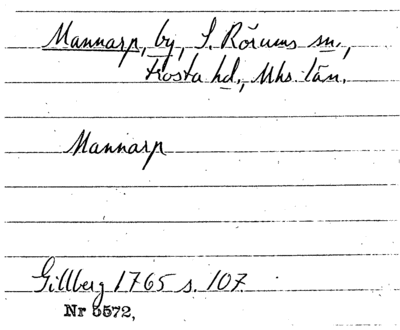 Mannarp, by, S. Rörums sn.,
Frosta hd., Mhs. län.
Mannarp
Gillberg 1765 s. 107
Nr 5572,